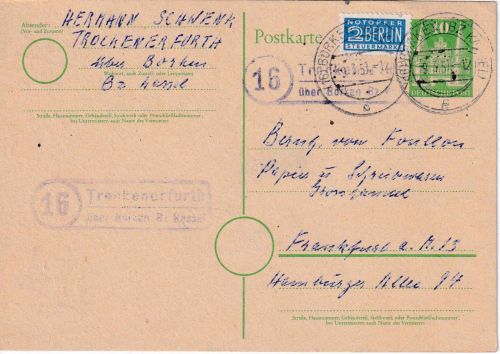 Absender:
(Vor- und Zuname)
HERMANN SCHWENK
TROCKENERFURTH
über Borken
Wohnort, auch Zustell- oder Leitpostamt
Bz Kassel
Straße, Hausnummer, Gebäudeteil, Stockwerk oder Postschließfachnummer,
bei Untermietern auch Name des Vermieters
Postkarte
NOTOPFER
2 BERLIN
STEUERMARKE
10
DEUTSCHE POST
16
über Borken Bz
16
Trockenerfurth
über Borken Bz Kassel
Papier u
Frankfurt a. M. 13
Hamburger Allee 94
Straße, Hausnummer, Gebäudeteil, Stockwerk oder Postschließfachnummer,
bei Untermietern auch Name des Vermieters